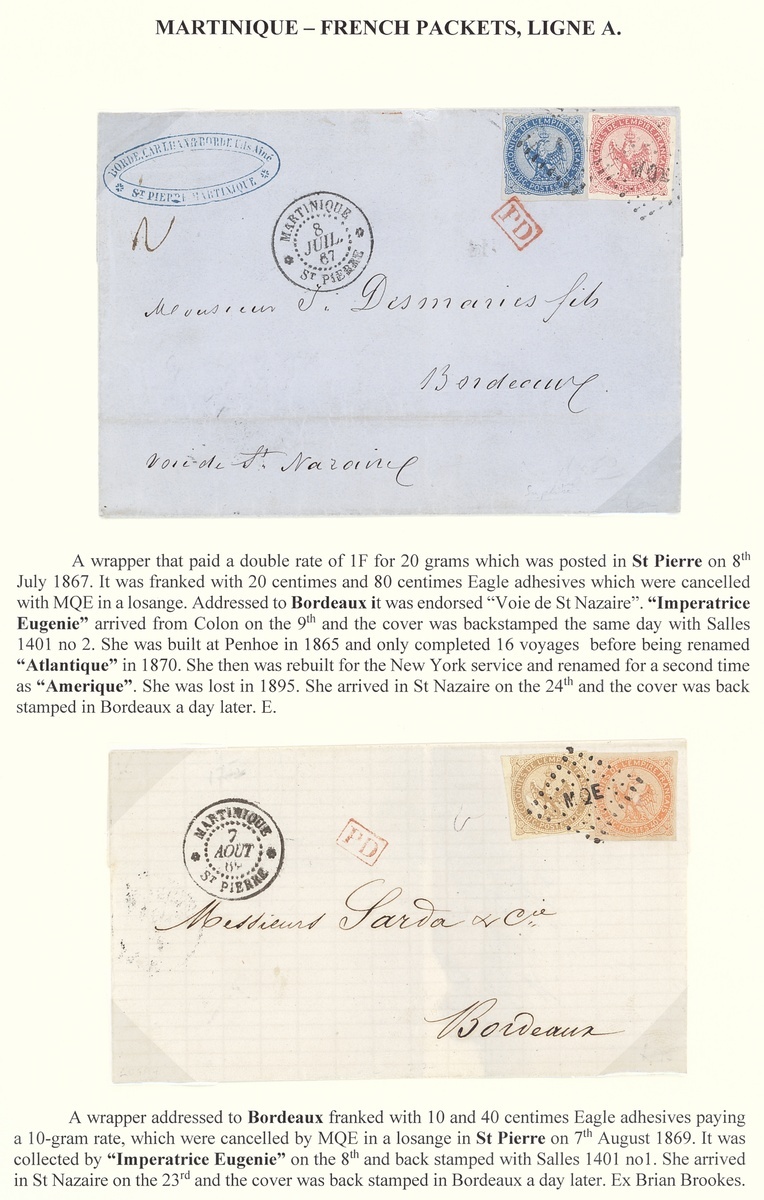 MARTINIQUE – FRENCH PACKETS, LIGNE A.
BORDE, CARLHAN & BORDE Fils Aîné
ST PIERRE MARTINIQUE
COLONIES DE L'EMPIRE FRANÇAIS
POSTES
COLONIES DE L'EMPIRE FRANÇAIS
POSTES
MQE
PD
MARTINIQUE
8
JUIL.
67
ST PIERRE
Monsieur J. Desmaries fils
Bordeaux
Voie de St. Nazaire
A wrapper that paid a double rate of 1F for 20 grams which was posted in St Pierre on 8th
July 1867. It was franked with 20 centimes and 80 centimes Eagle adhesives which were cancelled
with MQE in a losange. Addressed to Bordeaux it was endorsed “Voie de St Nazaire”. “Imperatrice
Eugenie” arrived from Colon on the 9th and the cover was backstamped the same day with Salles
1401 no 2. She was built at Penhoe in 1865 and only completed 16 voyages before being renamed
“Atlantique” in 1870. She then was rebuilt for the New York service and renamed for a second time
as “Amerique”. She was lost in 1895. She arrived in St Nazaire on the 24th and the cover was back
stamped in Bordeaux a day later. E.
MQE
MARTINIQUE
7
AOUT
ST PIERRE
PD
Messieurs Sarda & Cie
Bordeaux
A wrapper addressed to Bordeaux franked with 10 and 40 centimes Eagle adhesives paying
a 10-gram rate, which were cancelled by MQE in a losange in St Pierre on 7th August 1869. It was
collected by “Imperatrice Eugenie” on the 8th and back stamped with Salles 1401 no1. She arrived
in St Nazaire on the 23rd and the cover was back stamped in Bordeaux a day later. Ex Brian Brookes.